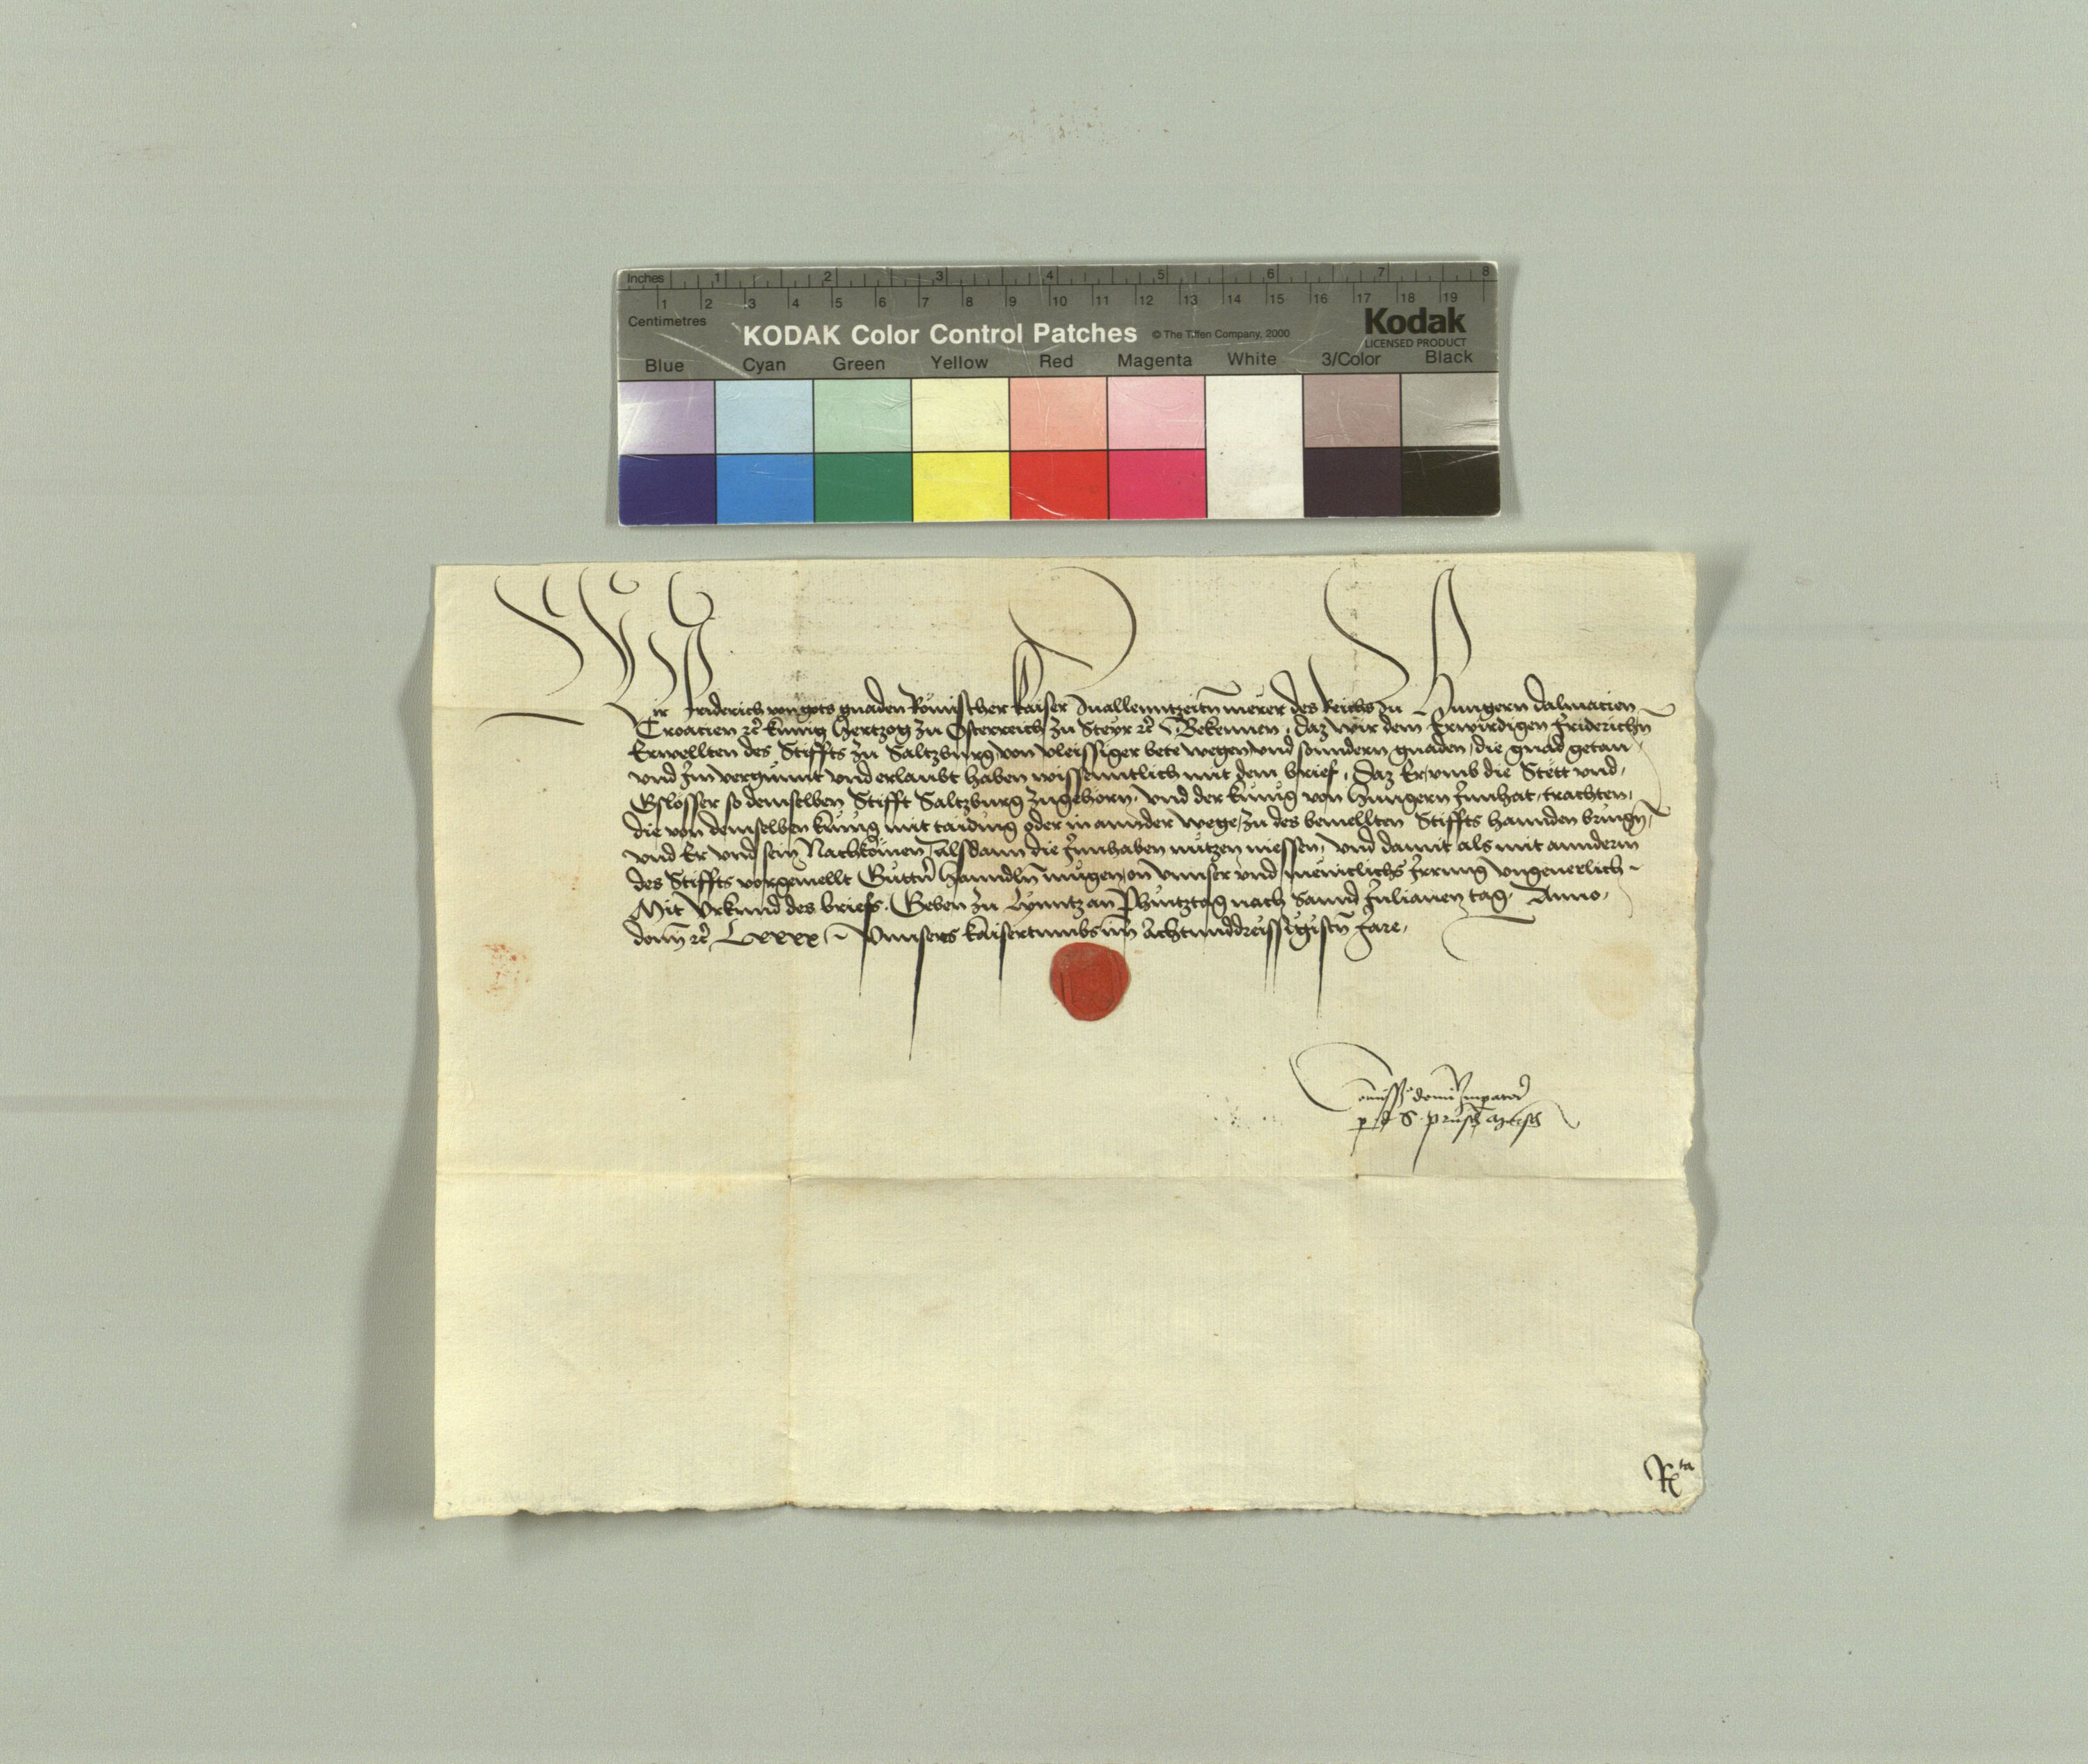 Inches 1 2 3 4 5 6 7 8
1 2 3 4 5 6 7 8 9 10 11 12 13 14 15 16 17 18 19
Centimetres
KODAK Color Control Patches © The Tiffen Company, 2000 Kodak
LICENSED PRODUCT
Blue Cyan Green Yellow Red Magenta White 3/Color Black
Wir Friderich von gots gnaden Römischer Kaiser Inallenntzeitn̄ merer des Reichs zu Hungern Dalmacien
Croacien ꝛc̄ kunig Hertzog zu Österreich zu Steyr ꝛc̄ Bekennen, daz wir dem Erwirdigen Friderichn̄
Erwellten des Stiffts zu Saltzburg von vleissiger bete wegen vnd sonndern gnaden, die gnad getan,
vnd Im vergunnt vnd erlaubt haben wissenntlich mit dem brief, Daz Er, vmb die Stett vnd,
Gslösser so demselben Stifft Saltzburg zugehörn, vnd der kunig von Hungern Innhat, trachten,
die von demselben kunig mit taiding oder in annder wege, zu des bemellten Stiffts hannden bringn̄,
vnd Er vnd sein Nachkōmen, alsdann die Innhaben nutzen niessen, vnd damit als mit anndern
des Stiffts vorgemellt Güttn̄ Hanndln̄ mügen, on vnnser vnd meniclichs Irrung vngeuerlich
Mit Vrkund des briefs. Geben zu Lynntz an Phintztag nach Sannd Julianen tag, Anno,
domī ꝛc̄ Lxxxx, Vnnsers kaisertumbs im̄ Achtunddreissigistn̄ Jare,
Com̄iss⁰ domī Imp̄ator̄
p d S. prüsch
Rta